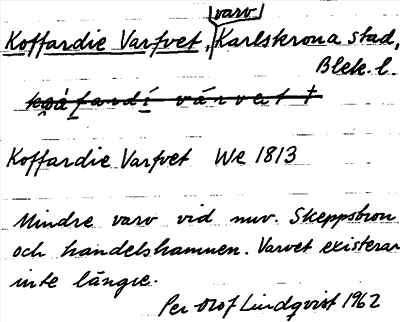 varv
Koffardie Varfvet, Karlskrona stad,
Blek. l.
Koffardie Varfvet We 1813
Mindre varv vid nuv. Skeppsbron
och handelshamnen. Varvet existerar
inte längre.
Per Olof Lindqvist 1962